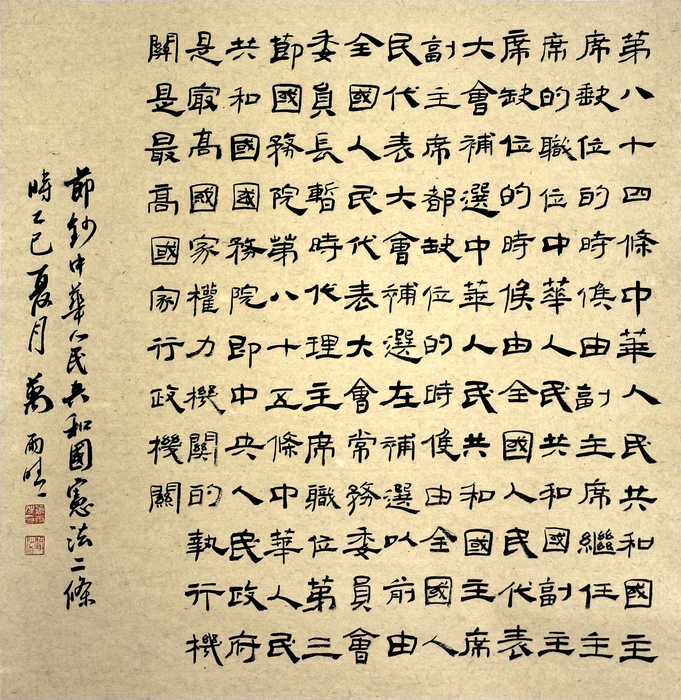 第八十四條中華人民共和國主
席缺位的時候由副主席繼任主
席的職位中華人民共和國副主
席缺位的時候由全國人民代表
大會補選中華人民共和國主席
副主席都缺位的時候由全國人
民代表大會補選在補選以前由
全國人民代表大會常務委員會
委員長暫時代理主席職位第三
節國務院第八十五條中華人民
共和國國務院即中央人民政府
是最高國家權力機關的執行機
關是最高國家行政機關
節鈔中華人民共和國憲法二條
時乙巳夏月萬雨晴